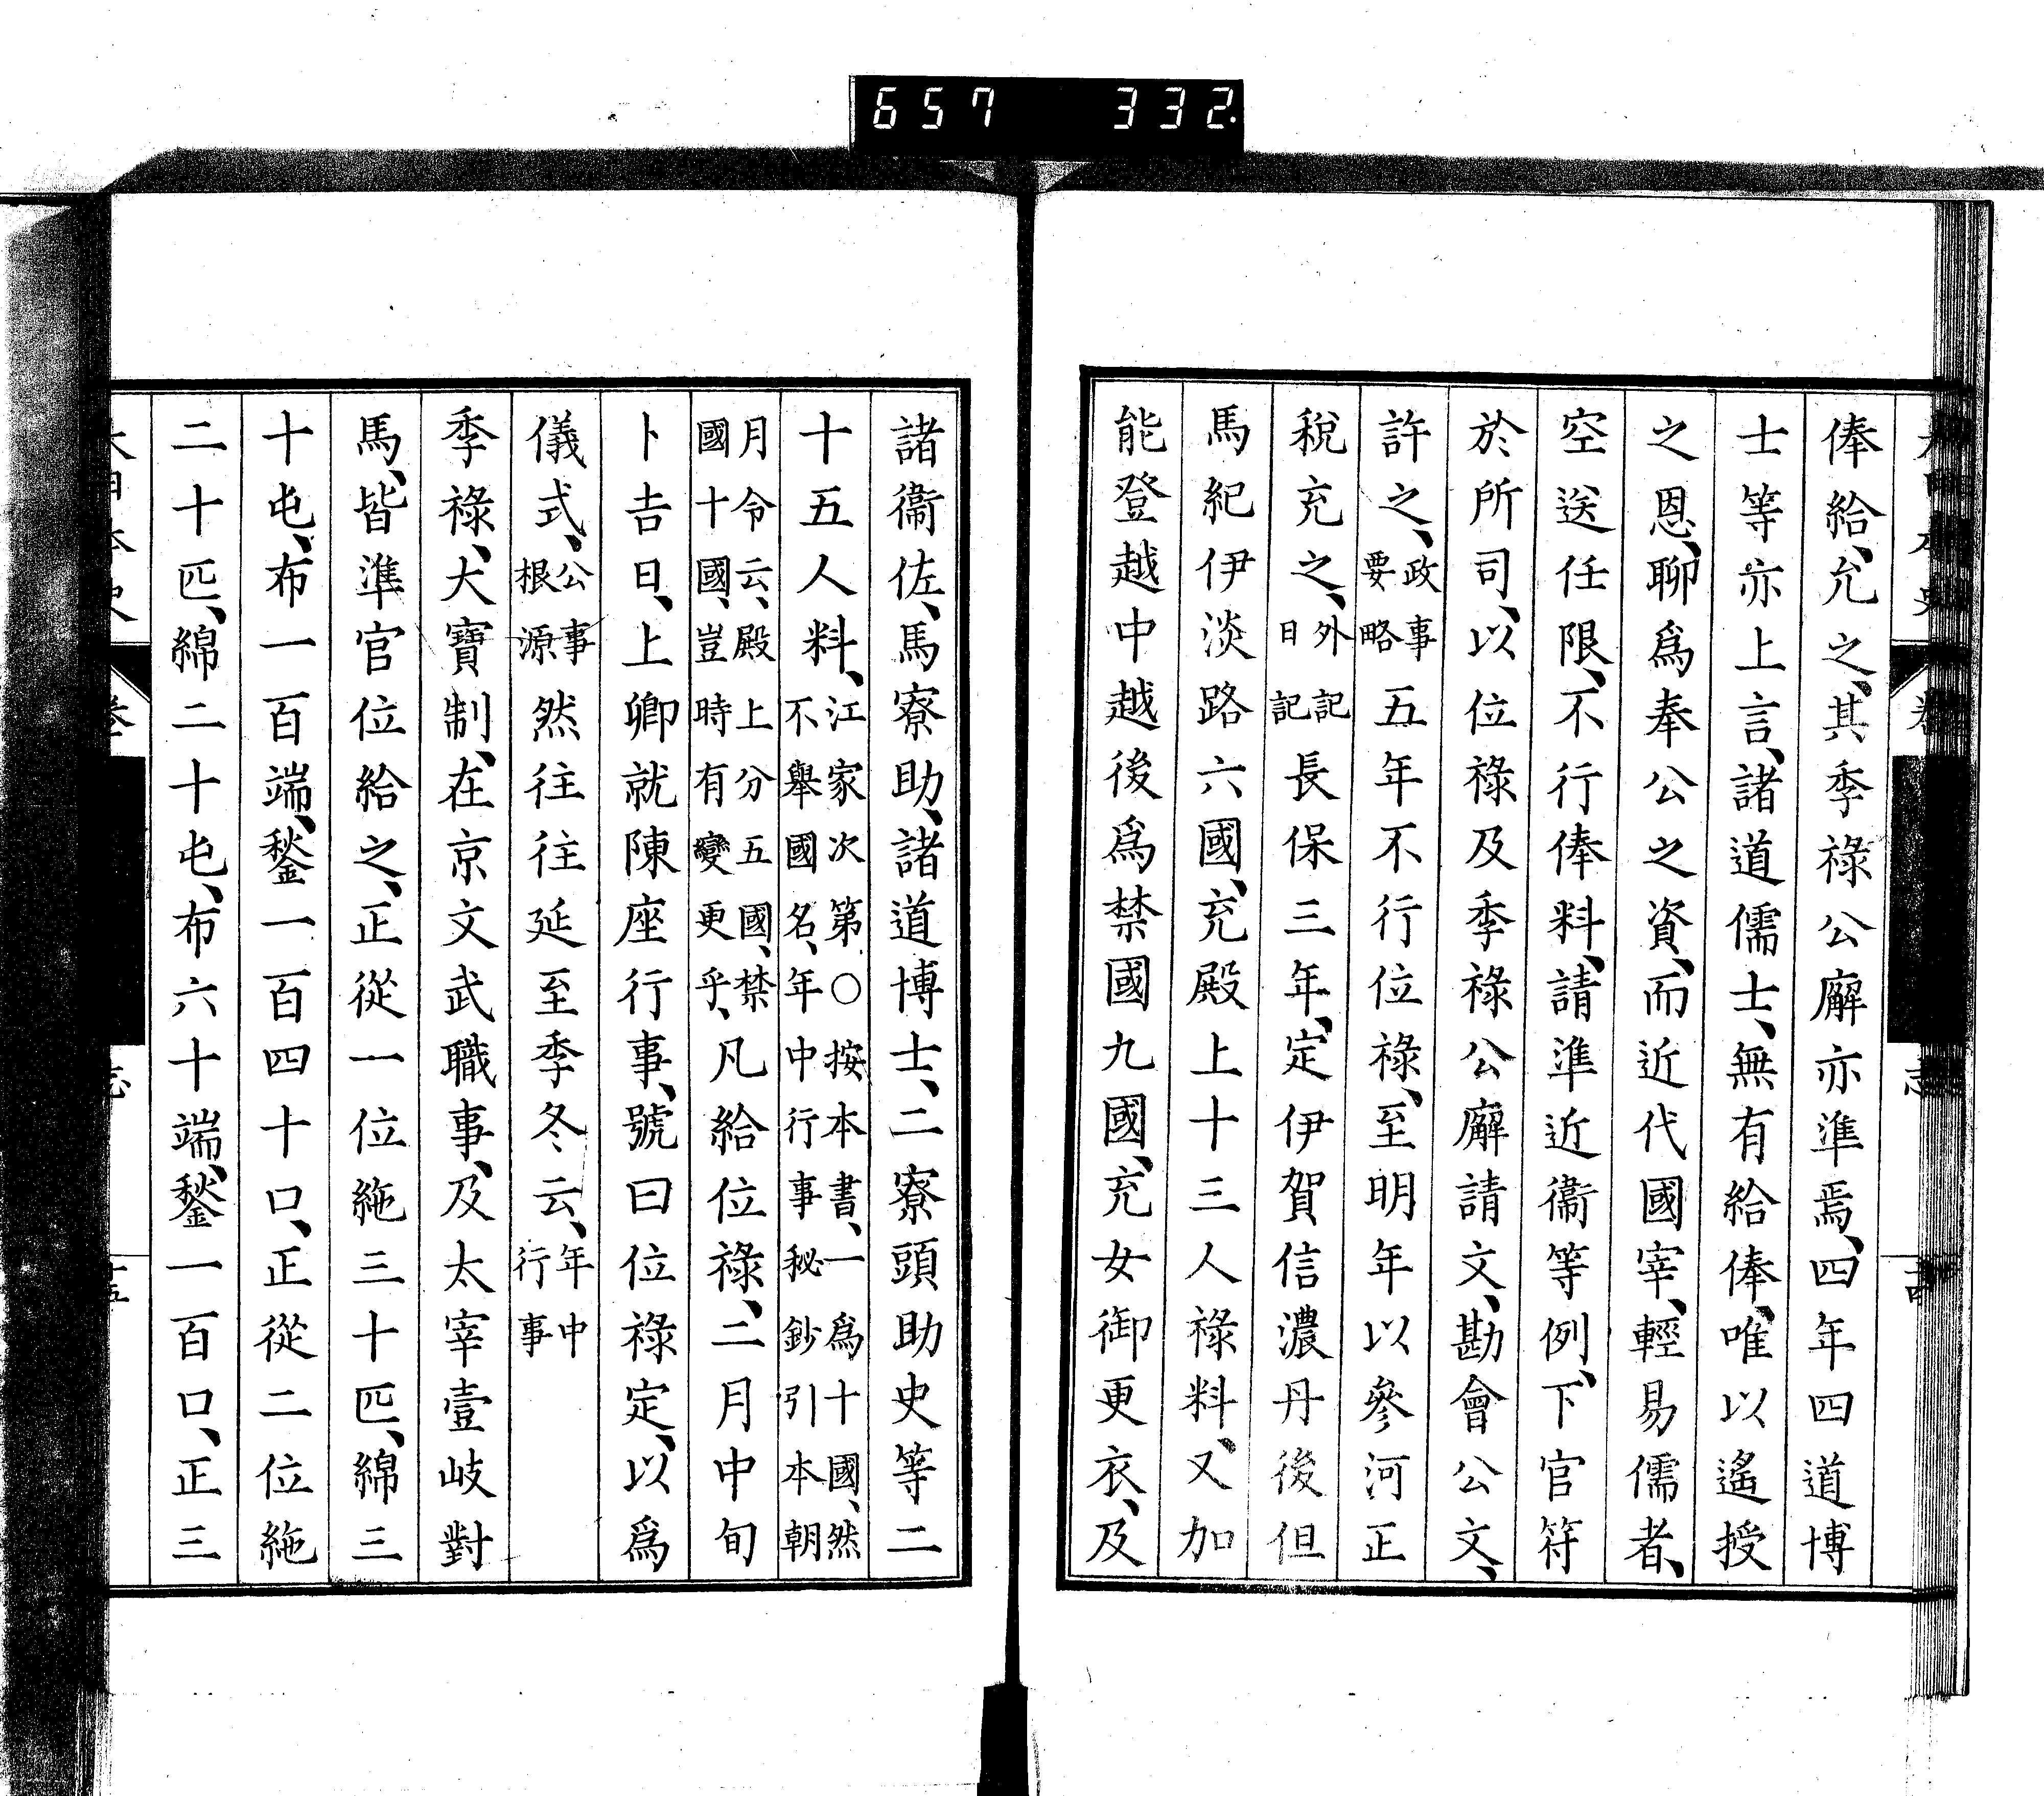 657 332.
俸給、允之、其季祿公廨亦準焉、四年四道博
士等亦上言、諸道儒士、無有給俸、唯以遙授
之恩、聊爲奉公之資、而近代國宰、輕易儒者、
空送任限、不行俸料、請準近衞等例、下官符
於所司、以位祿及季祿公廨請文、勘會公文、
許之、政事要略五年不行位祿、至明年以參河正
稅充之、外記日記長保三年、定伊賀信濃丹後但
馬紀伊淡路六國、充殿上十三人祿料、又加
能登越中越後爲禁國九國、充女御更衣、及
諸衞佐、馬寮助、諸道博士、二寮頭助史等二
十五人料、江家次第○按本書、一爲十國、然不擧國名、年中行事秘鈔引本朝
月令云、殿上分五國、禁國十國、豈時有變更乎、凡給位祿、二月中旬
卜吉日、上卿就陳座行事、號曰位祿定、以爲
儀式、公事根源然往往延至季冬云、年中行事
季祿、大寶制、在京文武職事、及太宰壹岐對
馬、皆準官位給之、正從一位絁三十匹、綿三
十屯、布一百端、鍫一百四十口、正從二位絁
二十匹、綿二十屯、布六十端、鍫一百口、正三